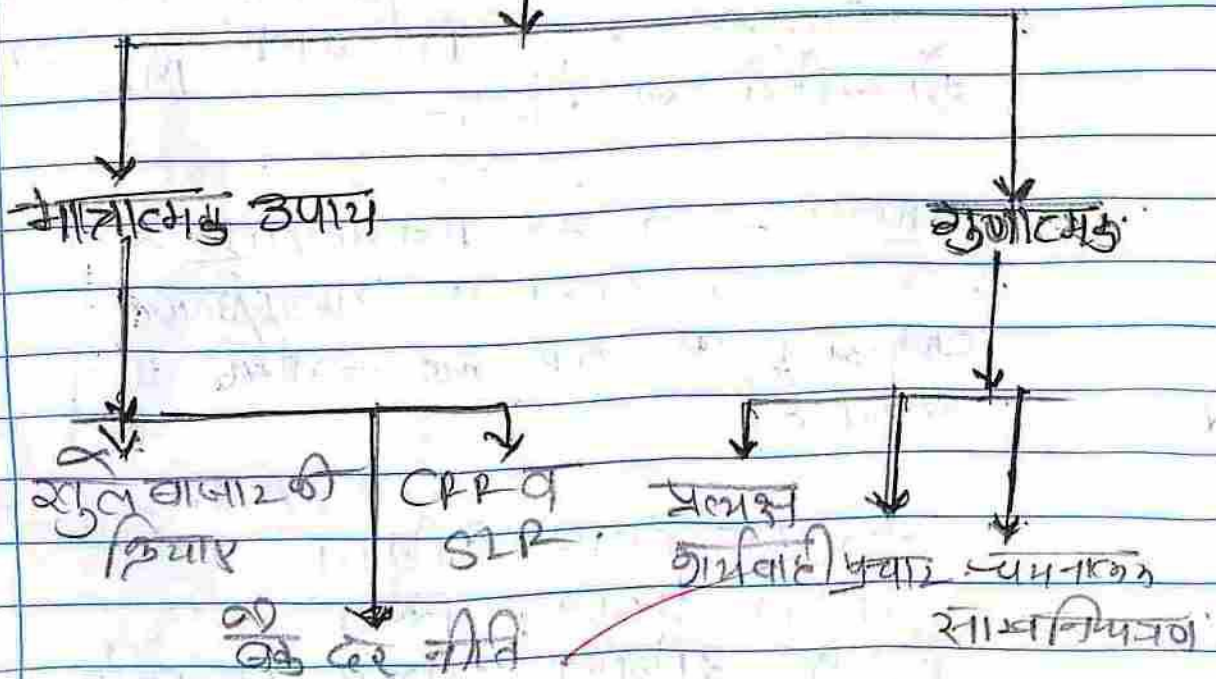 मात्रात्मक उपाय
गुणात्मक
खुले बाजार की क्रियाए
बैंक दर नीति
CRR व SLR.
प्रत्यक्ष कार्यवाही
प्रचार
चयनात्मक साख नियंत्रण